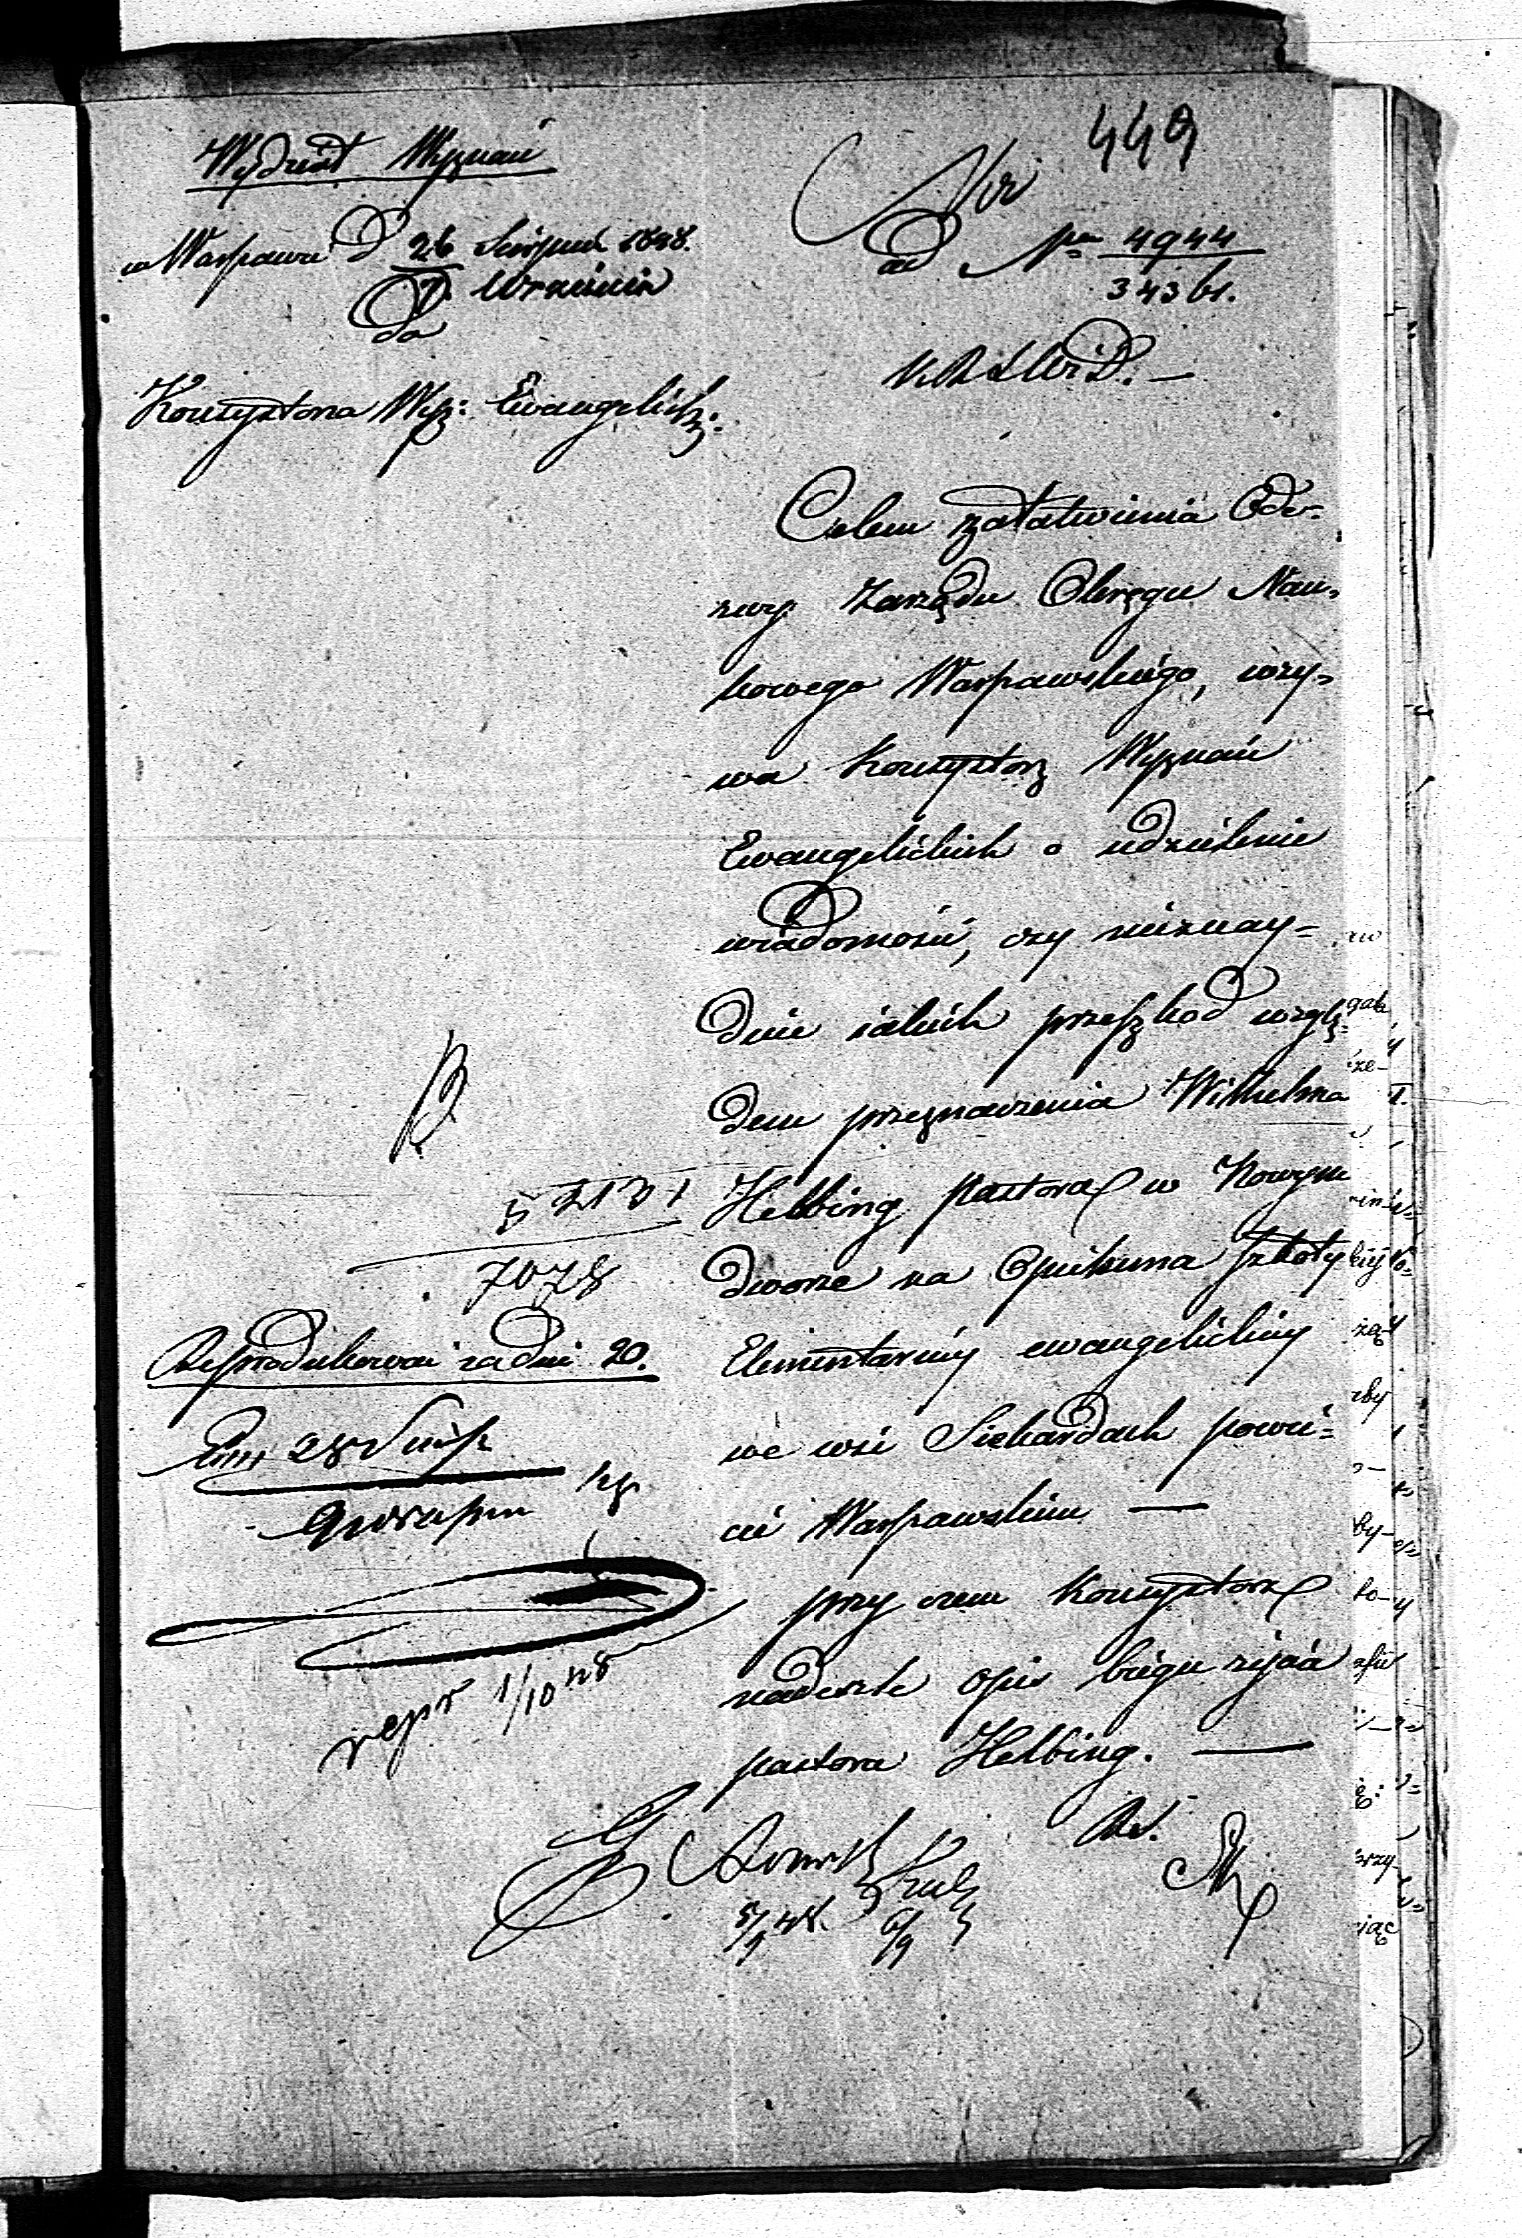 449
Wydział Wyznań
w Warszawie D 26 Sierpnia 1848.
7 Września
Do
Konsystorza Wyz: Ewangelick:
Nr
ad Nr 4944
343 br.
K.R.S.W.i D. —
Celem załatwienia Ode-
zwy Zarządu Okręgu Nau-
kowego Warszawskiego, wzy-
wa Konsystorz Wyznań
Ewangelickich o udzielenie
wiadomości, czy nieznay-
duie iakich przeszkod wzglę-
dem przeznaczenia Wilhelma
Helbing Pastora w Nowym
dworze na Opiekuna szkoły
Elementarnéy ewangelickiey
we wsi Siekardach powie-
cie Warszawskim —
przy czem Konsystorz
nadeszle opis biegu życia
pastora Helbing. —
52131
7078
Reprodukować za dni 20.
28 Sierp
repr 1/10 48
5/9 48.
6/9